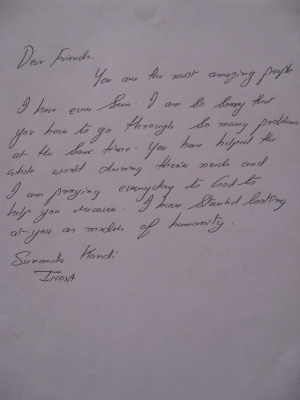 Dear Friends.
You are the most amazing people
I have ever seen. I am so sorry that
you have to go through so many problems
at the same time. You have helped the
whole world during their needs and
I am praying everyday to God to
help you recover. I have started looking
at you as models of humanity.
Sunanda Kandi
INDIA